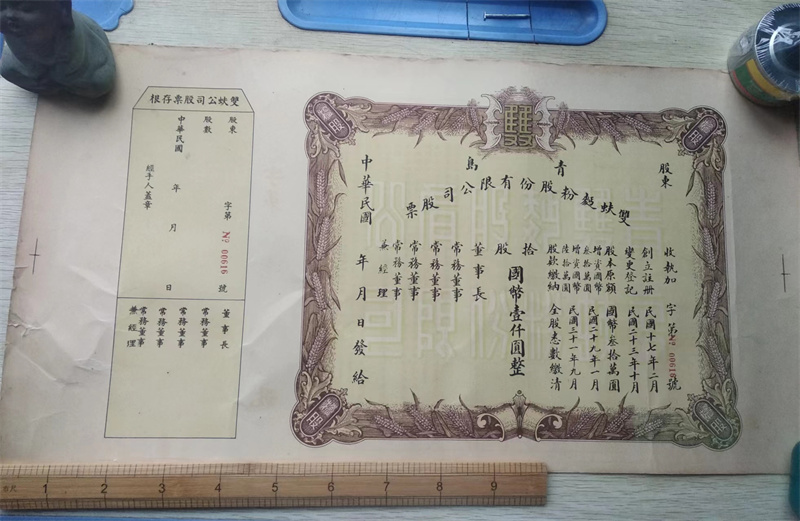 雙
青島
雙蚨麪粉股份有限公司股票
股東
收執加 字第 號
№ 00616
創立註册 民國十七年二月
變更登記 民國二十三年十月
股本原額 國幣叁拾萬圓
增資國幣叁拾萬圓 民國二十九年一月
增資國幣陸拾萬圓 民國三十一年九月
股款繳納 全股悉數繳清
拾股 國幣壹仟圓整
董事長
常務董事
常務董事
常務董事
常務董事兼經理
中華民國 年 月 日發給
雙蚨公司股票存根
股東 字第 號
№ 00616
股數
中華民國 年 月 日
經手人蓋章
董事長
常務董事
常務董事
常務董事
常務董事兼經理
1 2 3 4 5 6 7 8 9